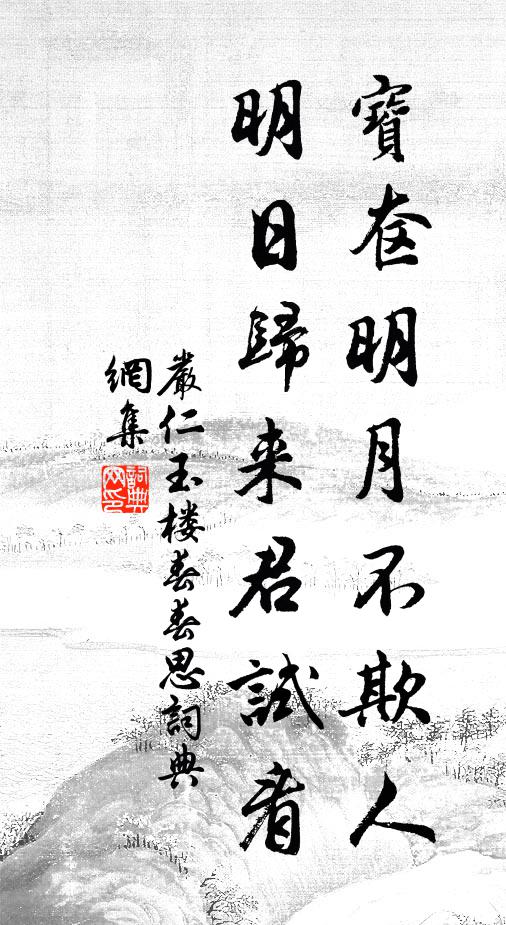 寶奁明月不欺人
明日歸来君試看
嚴仁玉楼春春思詞典
網集
詞典
网印